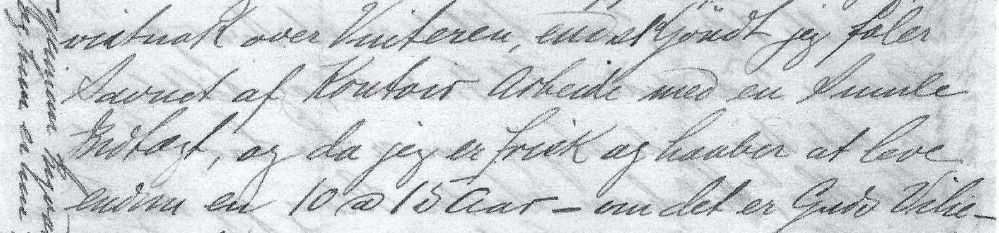 vistnok over Vinteren, endskjöndt jeg föler
Savnet af Kontoir Arbeide med en Smule
Indtægt, og da jeg er frisk og haaber at leve
endnu en 10 a 15 Aar – om det er Guds Vilie –